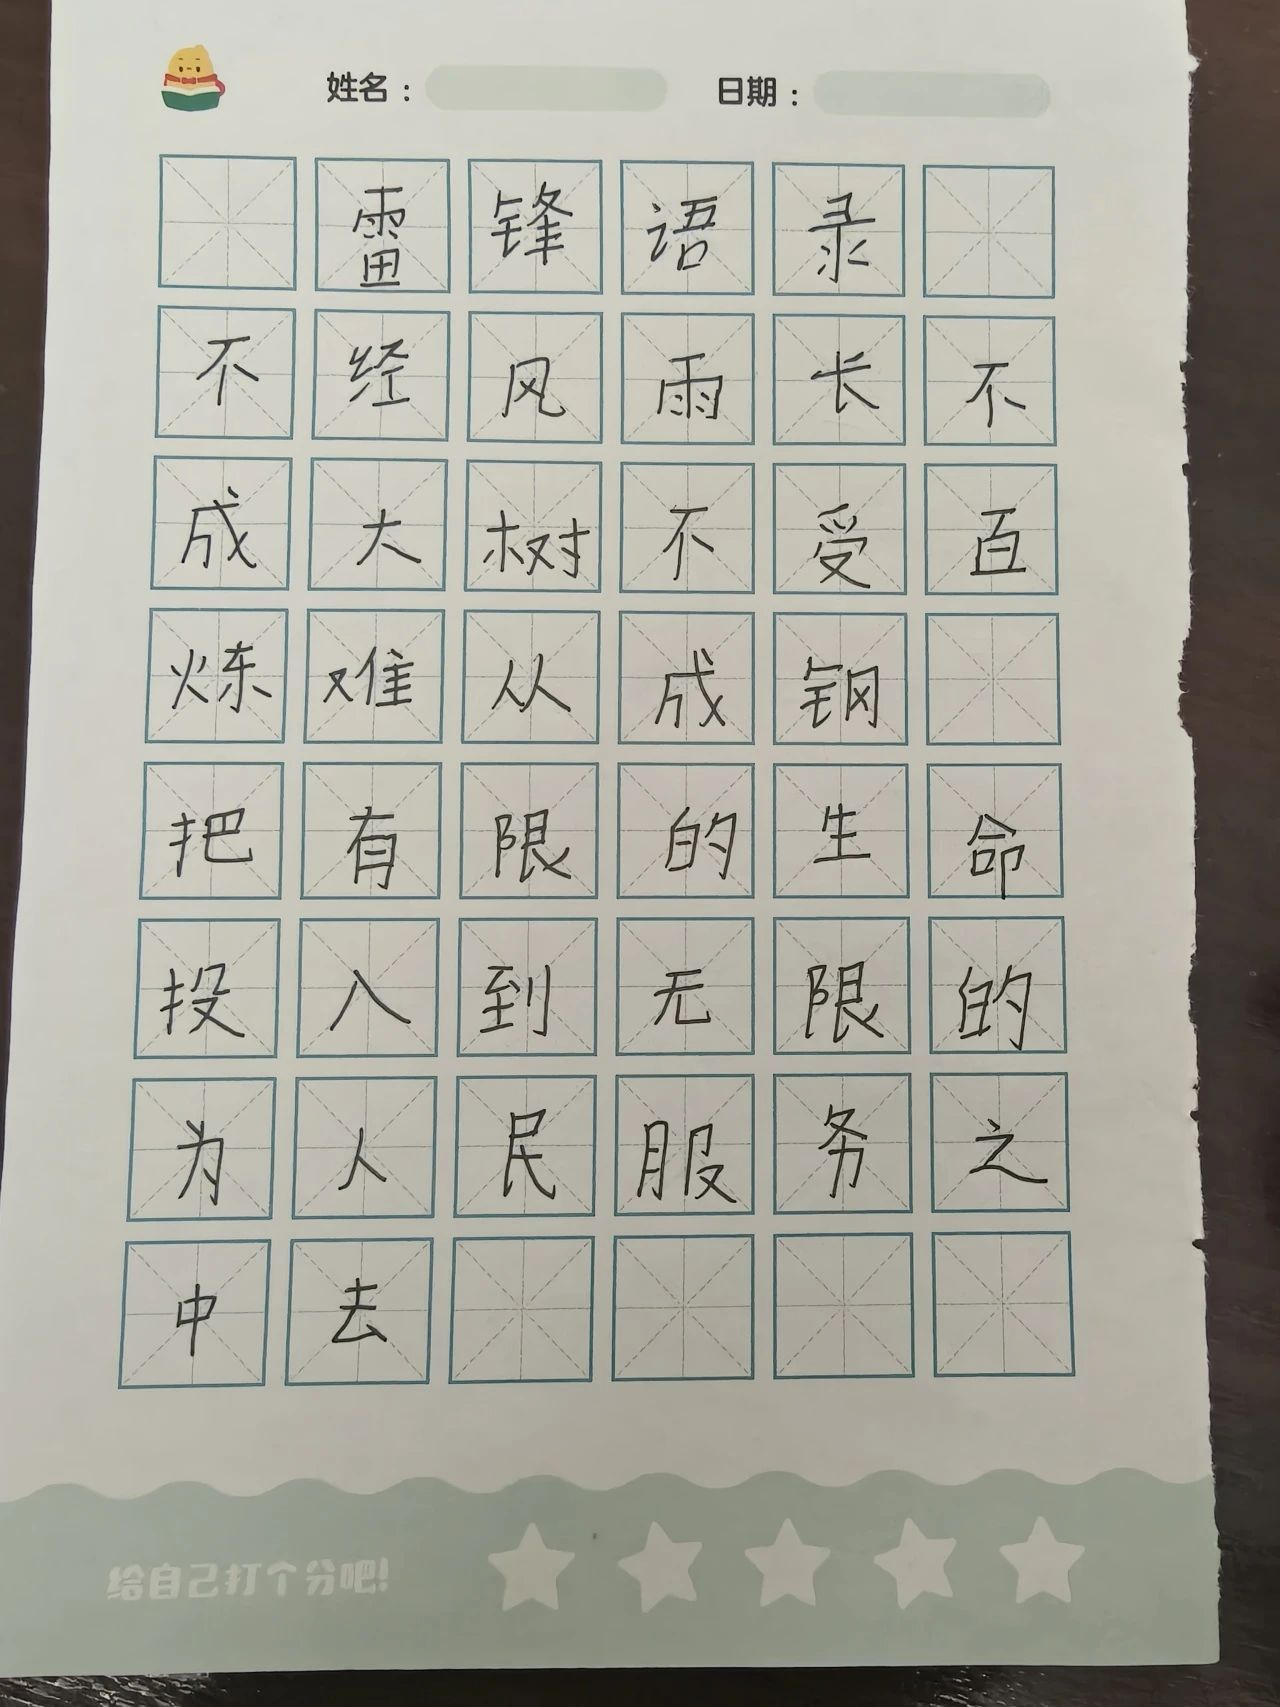 姓名： 日期：
雷锋语录
不经风雨长不
成大树不受百
炼难从成钢
把有限的生命
投入到无限的
为人民服务之
中去
给自己打个分吧!